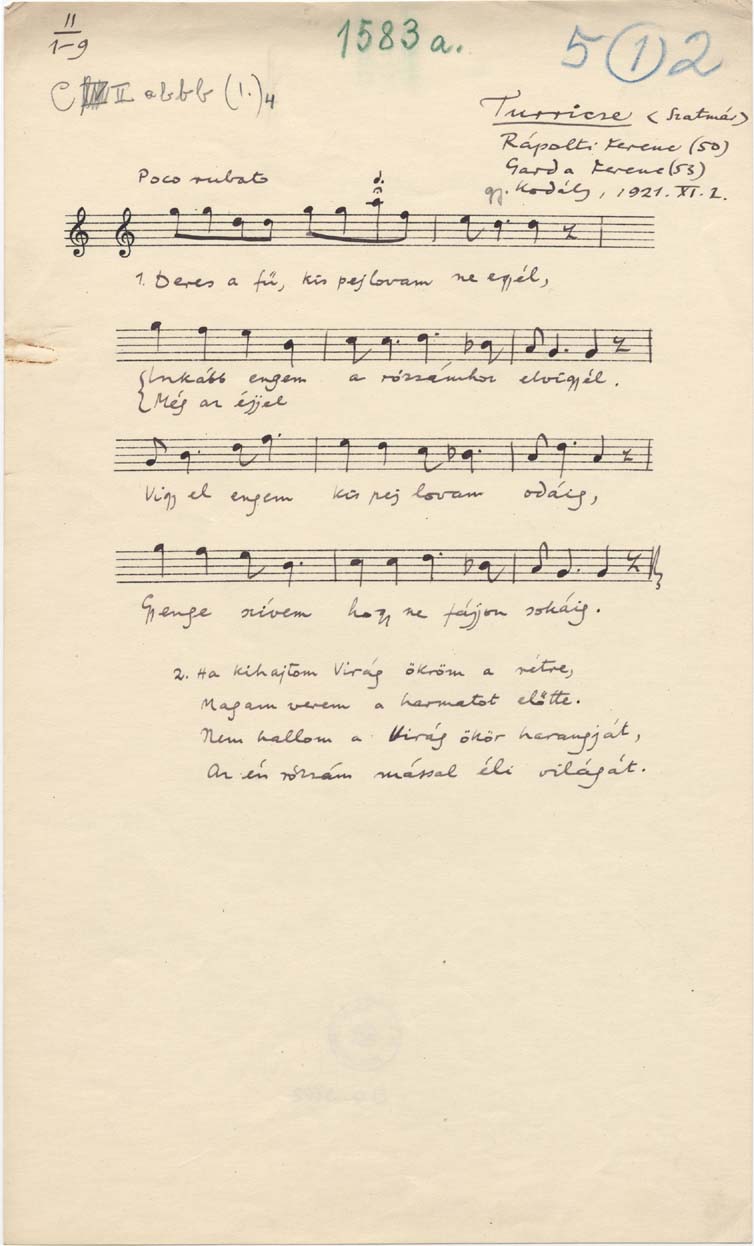 II
1-9
1583 a.
5 (1) 2
C II abbb (1.)4
Turricse (Szatmár)
Rápolti Ferenc (50)
Garda Ferenc (53)
gy. Kodály, 1921. XI. 2.
Poco rubato
1. Deres a fű, kis pejlovam ne egyél,
Inkább engem a rózsámhoz elvigyél.
Még az éjjel
Vigy el engem kis pej lovam odáig,
Gyenge szívem hogy ne fájjon sokáig.
2. Ha kihajtom Virág ökröm a rétre,
Magam verem a harmatot előtte.
Nem hallom a Virág ökör harangját,
Az én rózsám mással éli világát.